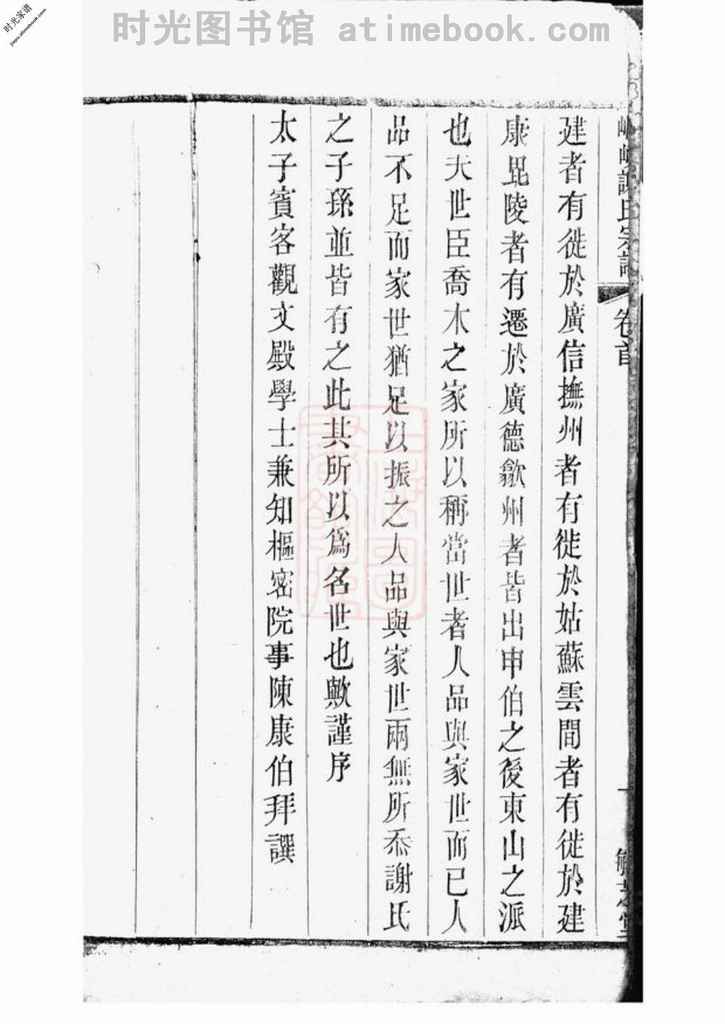 时光图书馆 atimebook.com
时光家谱
氏宗譜 卷首
建者有徙於廣信撫州者有徙於姑蘇雲間者有徙於建
康毘陵者有遷於廣德歙州者皆出申伯之後東山之派
也夫世臣喬木之家所以稱當世者人品與家世而已人
品不足而家世猶足以振之人品與家世兩無所忝謝氏
之子孫並皆有之此其所以爲名世也歟謹序
太子賓客觀文殿學士兼知樞密院事陳康伯拜譔